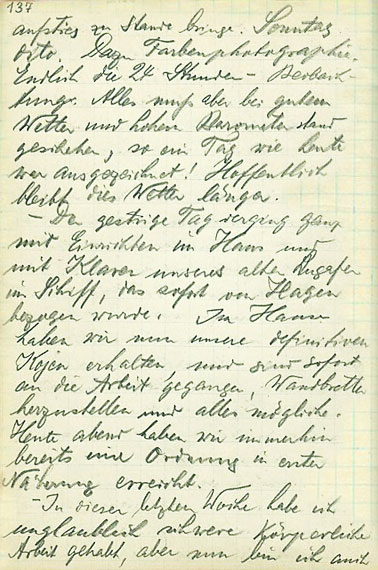 137
aufstieg zu Stande bringe. Sonntag
dito. Dazu Farbenphotographie.
Endlich die 24 Stunden - Beobach-
tunge. Alles muss aber bei gutem
Wetter und hohem Barometerstand
geschehen, so ein Tag wie heute
war ausgezeichnet! Hoffentlich
bleibt dies Wetter länger.
- Der gestrige Tag verging ganz
mit Einrichten im Haus und
mit Klaren unseres alten
im Schiff, das sofort von Hagen
bezogen wurde. Im Hause
haben wir nun unsere definitiven
Kojen erhalten, und sind sofort
an die Arbeit gegangen, Wandbretter
herzustellen und alles mögliche.
Heute abend haben wir immerhin
bereits eine Ordnung in erster
Näherung erreicht.
- In dieser letzten Woche habe ich
unglaublich schwere körperliche
Arbeit gehabt, aber nun bin ich auch